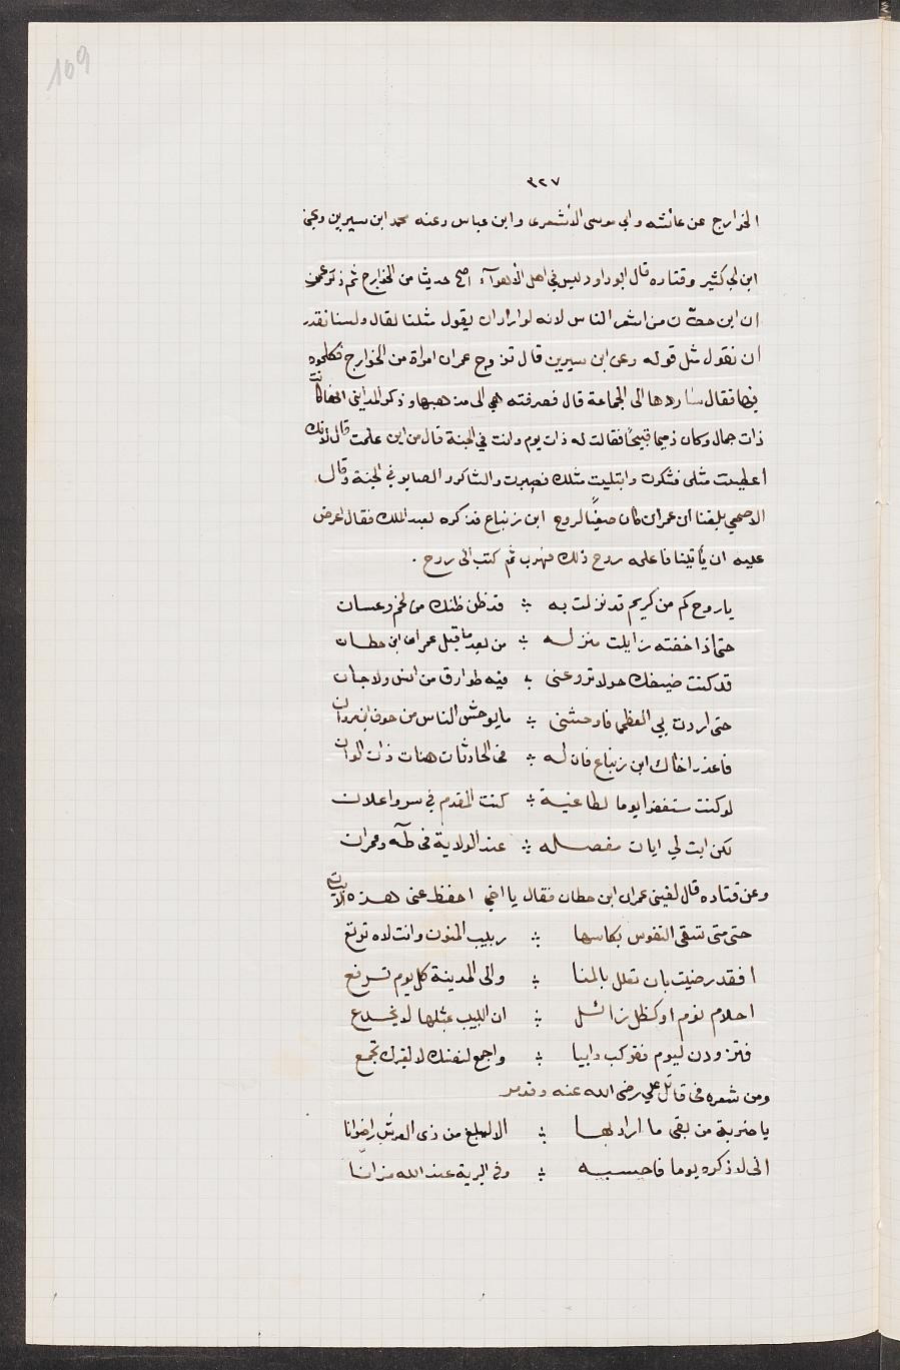 109
٣٢٧
الخوارج عن عائشه وابي موسى الأشعرى وابن عباس وعنه محمد ابن سيرين ويحيى
ابن ابي كثير وقتاده قال ابو داود ليس في اهل الأهوآء اصح حديثا من الخوارج ثم ذكر عمران
ان ابن حطّان من اشعر الناس لانه لو اراد ان يقول مثلنا لقال ولسنا نقدر
ان نقول مثل قوله وعن ابن سيرين قال تزوج عمران امراة من الخوارج فكلموه
فيها فقال سأردها الى الجماعة قال فصرفته هي الى مذهبها وذكر المدايني انها كانت
ذات جمال وكان ذميما قبيحًا فقالت له ذات يوم وانت في الجنة قال من اين علمت قال لأنك
اعطيت مثلى فشكرت وابتليت مثلك فصبرت والشاكر والصابر في الجنة وقال
الاصمعي بلغنا ان عمران كان ضيفًا لروح ابن زنباع فذكره لعبد الملك فقال اعرض
عليه ان يأتينا فاعلمه روح ذلك فهرب ثم كتب الى روح .
ياروح كم من كريم قد نزلت به ⁘ قد ظن ظنك من لخم وغسان
حتى اذا خفته زايلت منزله ⁘ من بعد ما قيل عمران ابن حطان
قد كنت ضيفك حولا تروعنى ⁘ فيه طوارق من انس ولا جان
حتى اردت بي العظمى فاوحشنى ⁘ ما يوحش الناس من خوف ابن مروان
فاعذر اخاك ابن زنباع فان له ⁘ في الحادثات هنات ذات الوان
لو كنت مستغفرا يوما لطاغية ⁘ كنت المقدم في سر واعلان
لكن ابت لي ايات مفصله ⁘ عند الولاية في طه وعمران
وعن قتاده قال لقينى عمران ابن حطان فقال يا اخي احفظ عنى هذه الابيات
حتى متى تسقى النفوس بكاسها ⁘ ريب المنون وانت لاه ترتع
افقد رضيت بان تعلل بالمنا ⁘ والى المدينة كل يوم تسرع
احلام نوم او كظل زائل ⁘ ان اللبيب بمثلها لا يخدع
فتزودن ليوم فقرك دايبا ⁘ واجمع لنفسك لا لغيرك تجمع
ومن شعره في قاتل علي رضى الله عنه وقد مر
يا ضربة من بقى ما اراد بها ⁘ الا ليبلغ من ذى العرش رضوانا
انى لاذكره يوما فاحسبه ⁘ وفى البرية عند الله ميزانا